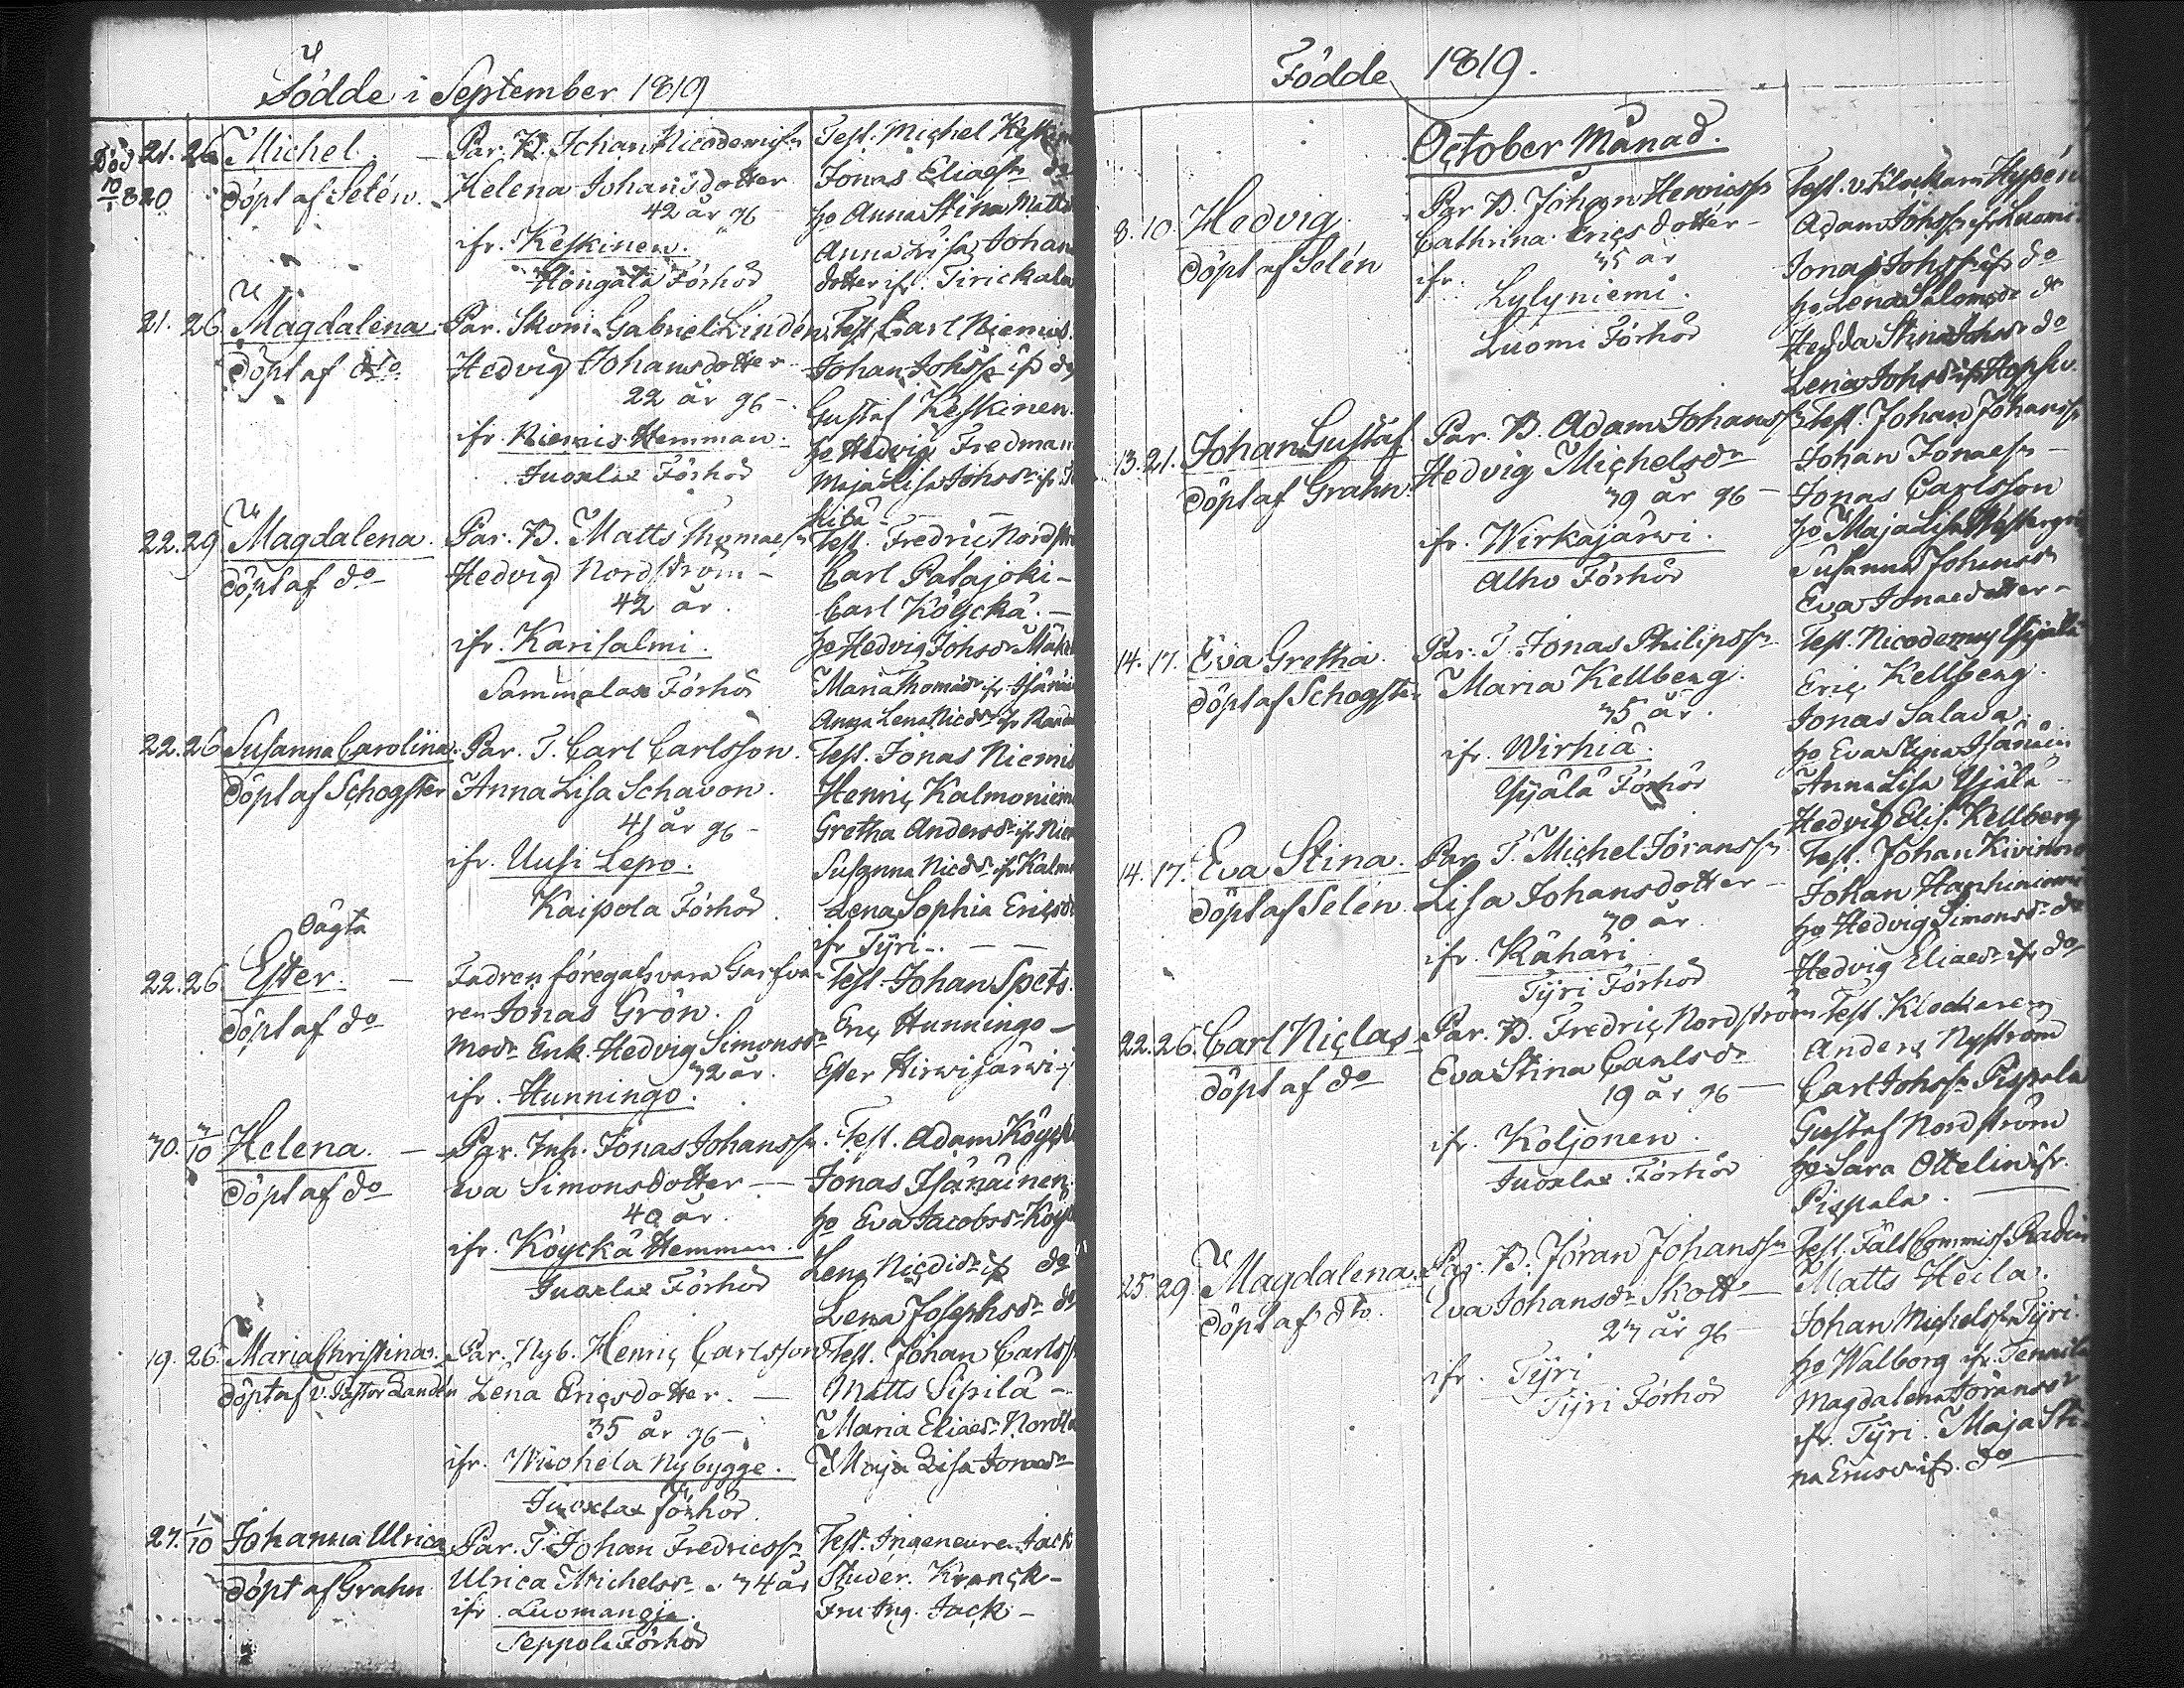 Födde i September 1819
Död 10/1 820
21. 26. Michel.
döpt af Selén.
Par. B. Johan Nicodemiss:n
Helena Johansdotter
42 år g6
ifr. Keskinen.
Hongala Förhör
Test. Michel Keskin
Jonas Eliaess:n do
ho Anna Stina Matts
Anna Lisa Johans
dotter ifr. Tirickala
21. 26. Magdalena
döpt af do
Par. Skom. Gabriel Lindén
Hedvig Johansdotter
22 år g6 -
ifr. Niemis Hemman.
Juoxlax Förhör
Test. Carl Niemis.
Johan Johss:n ifr do
Gustaf Keskinen.
ho Hedvig Fredman
Maja Lisa Johsd:r ifr
22. 29. Magdalena.
döpt af do
Par. B. Matts Thomaess:n
Hedvig Nordström -
42 år.
ifr. Karisalmi.
Sammalax Förhör
Test. Fredric Nordström
Carl Patajoki -
Carl Köyckä. -
ho Hedvig Johsd:r Mäkel
Maria Thomasd:r ifr Isänäi
Anna Lena Nicd:r ifr
22. 26. Susanna Carolina.
döpt af Schogster
Par. T. Carl Carlsson.
Anna Lisa Schavon.
41 år g6 -
ifr. Uusi Lepo.
Kaipola Förhör.
Test. Jonas Niemis
Henric Kalmoniem
Gretha Andersd:r ifr Niem
Susanna Nicd:r ifr Kalm
Lena Sophia Ericsd:r
ifr Tÿri -. - -
Oägta
22. 26. Ester. -
döpt af do
Fadren föregafs vara Garfva-
ren Jonas Grön.
Mod:r Enk. Hedvig Simonsd:r
32 år.
ifr. Hunningo.
Test. Johan Spets.
Eric Hunningo -
Ester Hirvijärvi -
30. 3/10 Helena. -
döpt af do
Par. Inh. Jonas Johanss:n
Eva Simonsdotter -
40 år.
ifr. Köyckä Hemman.
Juoxlax Förhör
Test. Adam Köyckä
Jonas Isänäinen.
ho Eva Jacobsd:r Köyck
Lena Nicdid:r ifr do
Lena Josephsd:r do
19. 26. Maria Christina.
döpt af v. Pastor Zandén
Par. Nyb. Henric Carlsson
Lena Ericsdotter. -
35 år g6 -
ifr. Wuohela Nybygge.
Juoxlax Förhör.
Test. Johan Carlss:n
Matts Sipilä -
Maria Eliaed:r Nordl
Maja Lisa Jonaed:r
27. 1/10 Johanna Ulrica
döpt af Grahn
Par. T. Johan Fredricss:n
Ulrica Michelsd:r. 34 år
ifr. Luomanoja.
Seppola Förhör
Test. Ingeneuren Jack
Studer. Kranck -
Fru Ing. Jack -
Födde 1819.
October Månad.
8. 10. Hedvig.
döpt af Selén
Par. B. Johan Henricss:n
Cathrina Ericsdotter -
35 år
ifr. Lylyniemi.
Luomi Förhör
Test. v. Klockaren Hypén
Adam Johss:n ifr Luomi
Jonas Johss:n ifr do
ho Lena Salomsd:r do
Hedda Stina Johsd:r do
Lena Johsd:r ifr
13. 21. Johan Gustaf
döpt af Grahn.
Par. B. Adam Johanss:n
Hedvig Michelsd:r
39 år g6 -
ifr. Wirkajärwi.
Alho Förhör
Test. Johan Johanss:n
Johan Jonaess:n -
Jonas Carlsson
ho Maja Lisa Westergre
Susanna Johansd:r
Eva Jonaedotter -
14. 17. Eva Gretha.
döpt af Schogster
Par. T. Jonas Philipss:n
Maria Kellberg.
35 år.
ifr. Wirhiä.
Yijälä Förhör
Test. Nicodemus Yijälä
Eric Kellberg.
Jonas Salava.
ho Eva Stina Isänäin
Anna Lisa Yijälä -
Hedvig Elis. Kellberg
14. 17. Eva Stina.
döpt af Selén
Par T. Michel Jöranss:n
Lisa Johansdotter -
30 år.
ifr. Kähäri.
Tÿri Förhör
Test. Johan
Johan
ho Hedvig Simonsd:r do
Hedvig Eliaed:r ifr do
22. 26. Carl Niclas
döpt af do
Par. B. Fredric Nordström
Eva Stina Carlsd:r
19 år g6 -
ifr. Koljonen.
Juoxlax Förhör
Test. Klockaren
Anders Nyström
Carl Johss:n Pispala
Gustaf Nordström
ho Sara Ottelin ifr.
Pispala.
25. 29. Magdalena.
döpt af dto.
Par. B. Jöran Johanss:n
Eva Johansd:r Skott -
23 år g6 -
ifr. Tÿri
Tÿri Förhör
Test. Fält Commiss. Radin
Matts Heila.
Johan Michelss:n Tÿri.
ho Walborg ifr. Tennilä
Magdalena Jöransd:r
ifr. Tÿri. Maja Sti-
na Ericsd:r ifr. do